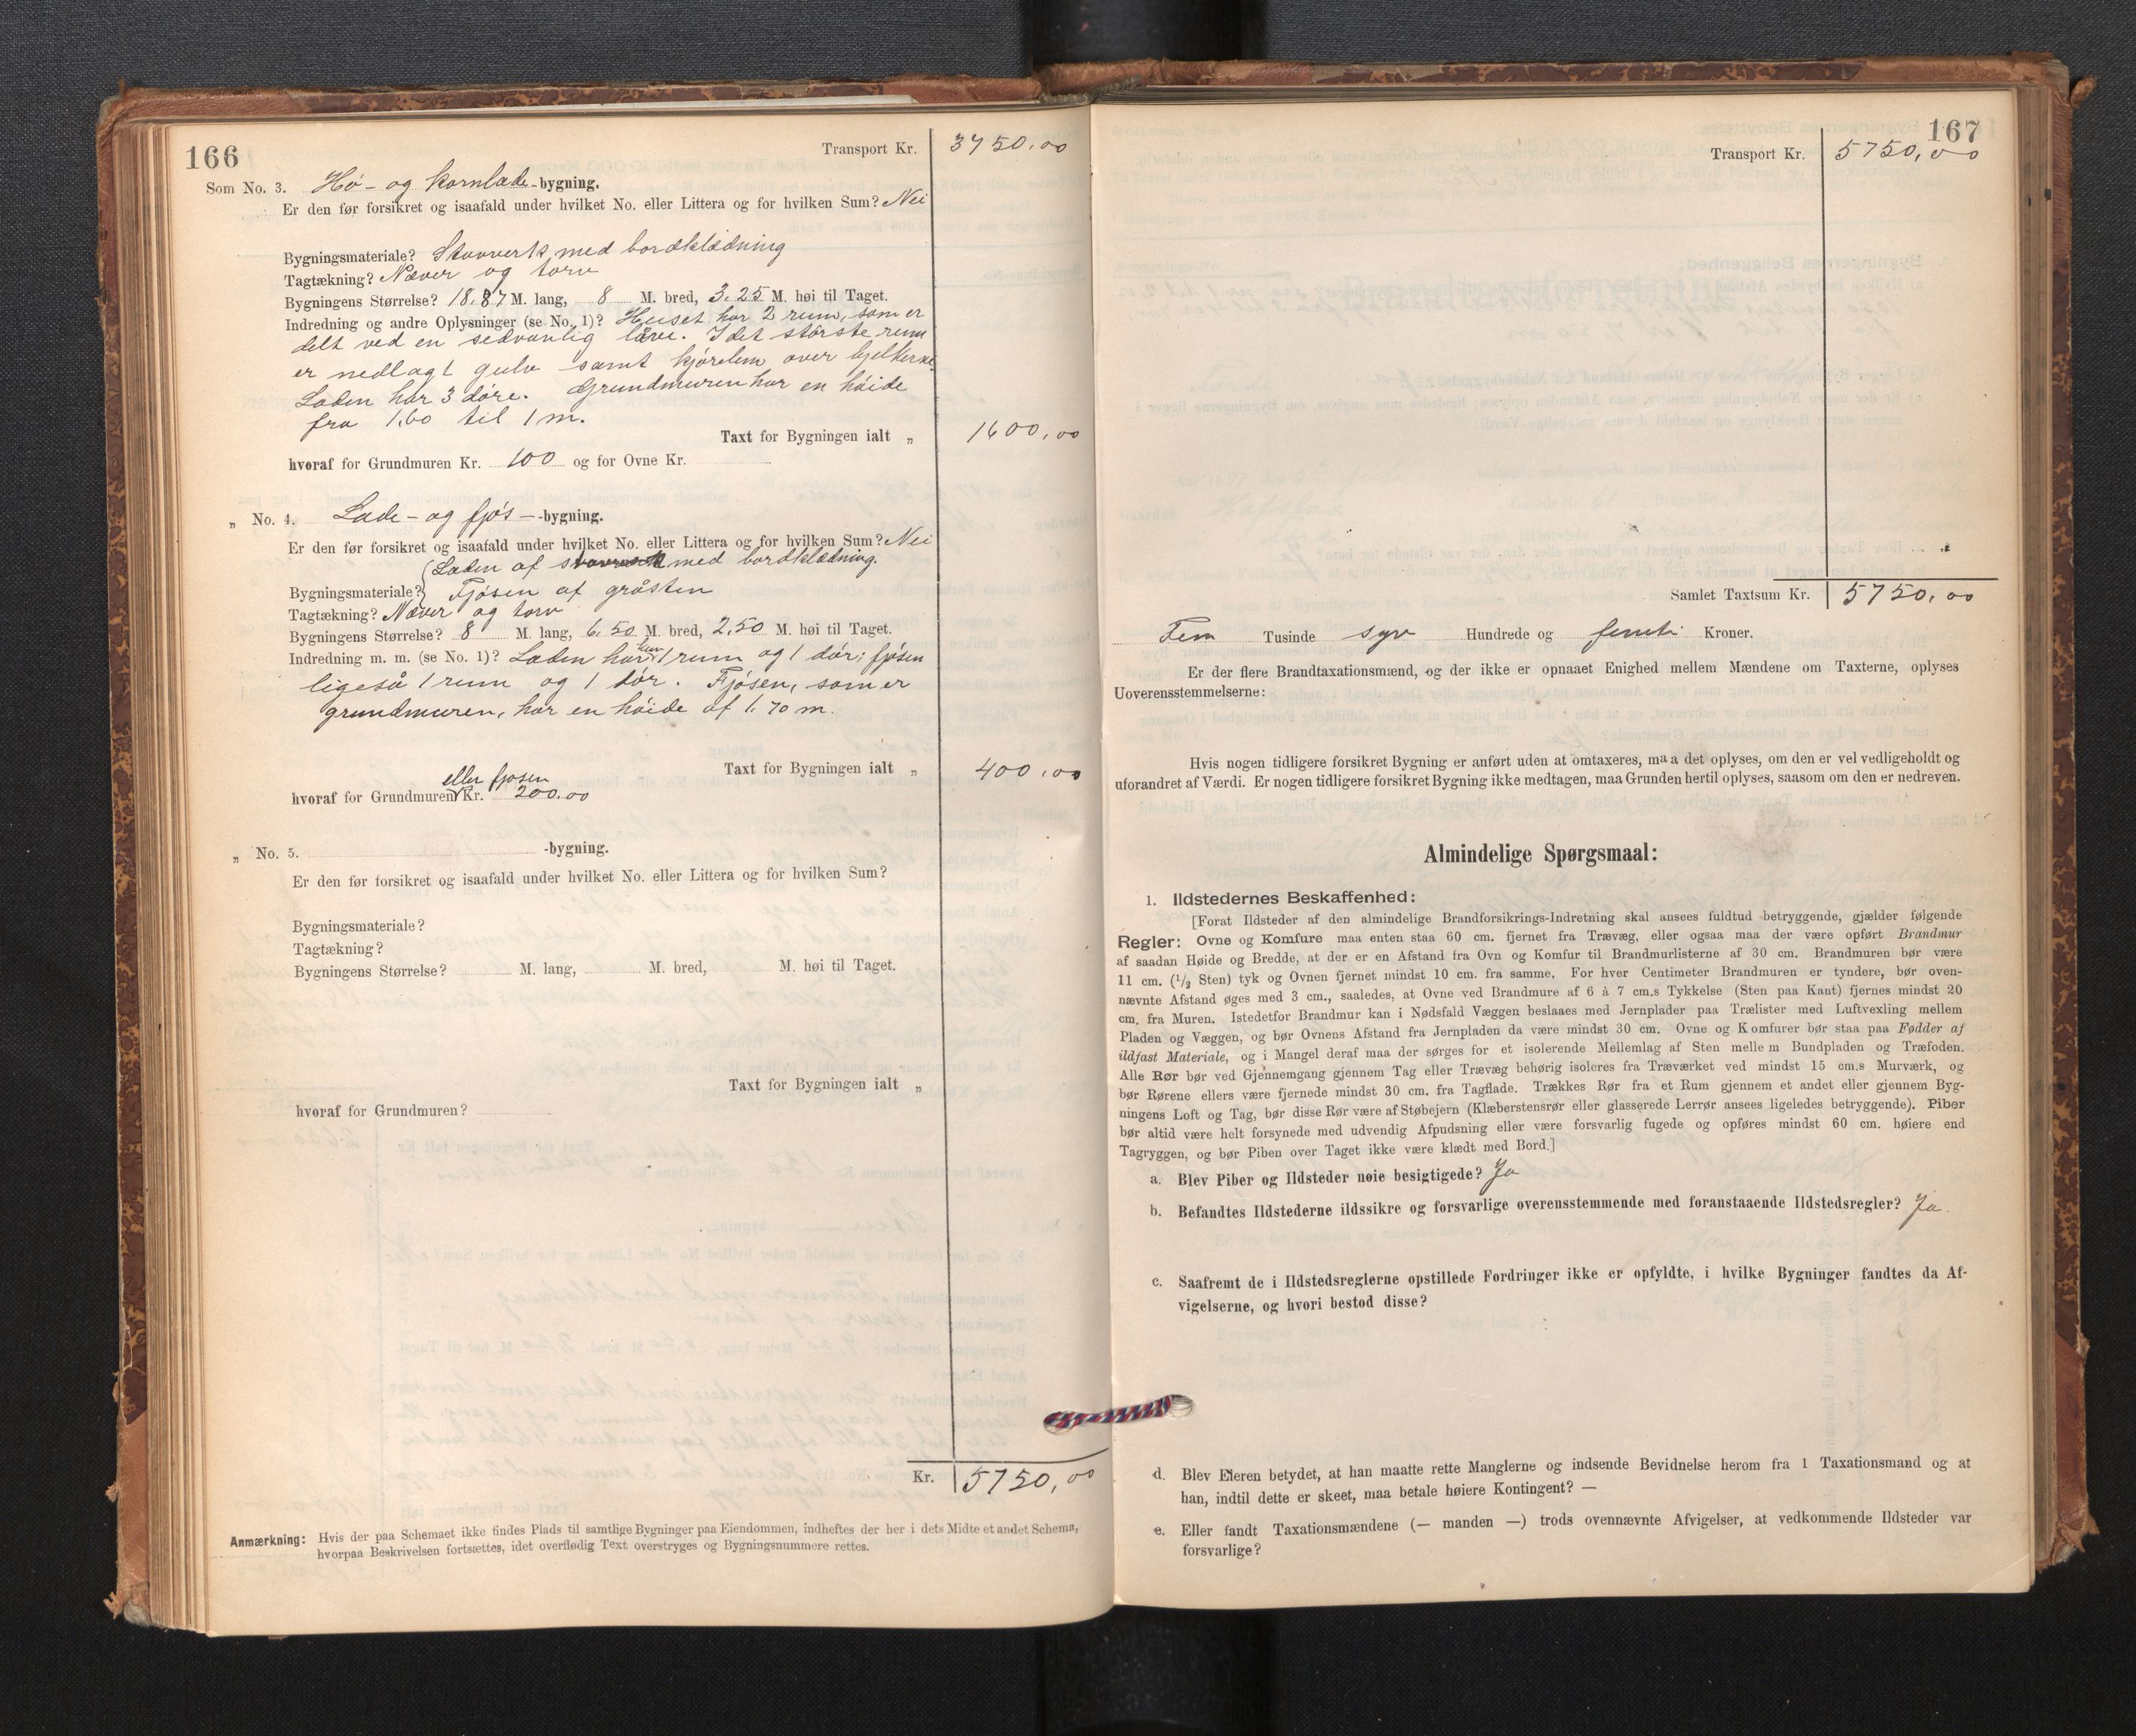 166
Transport Kr. 3750.00
Som No. 3. Hø- og kornlade-bygning.
Er den før forsikret og isaafald under hvilket No. eller Littera og for hvilken Sum? Nei
Bygningsmateriale? Stavverk med bordklædning
Tagtækning? Næver og torv
Bygningens Størrelse? 18.87 M. lang, 8 M. bred, 3.25 M. høi til Taget.
Indredning og andre Oplysninger (se No. 1)? Huset har 2 rum, som er
delt ved en sedvanlig låve. I det største rum
er nedlagt gulv samt kjørelem over bjelkerne.
Laden har 3 døre. Grundmuren har en høide
fra 1.60 til 1 m.
Taxt for Bygningen ialt „ 1600.00
hvoraf for Grundmuren Kr. 100 og for Ovne Kr.
„ No. 4. Lade- og fjøs-bygning.
Er den før forsikret og isaafald under hvilket No. eller Littera og for hvilken Sum? Nei
Laden af stavverk med bordklædning.
Bygningsmateriale? Fjøsen af gråsten
Tagtækning? Næver og torv
Bygningens Størrelse? 8 M. lang, 6.50 M. bred, 2.50 M. høi til Taget.
Indredning m. m. (se No. 1)? Laden har kun 1 rum og 1 dør; fjøsen
ligeså 1 rum og 1 dør. Fjøsen, som er
grundmuren, har en høide af 1.70 m.
Taxt for Bygningen ialt „ 400.00
eller fjøsen
hvoraf for Grundmuren Kr. 200.00
„ No. 5. -bygning.
Er den før forsikret og isaafald under hvilket No. eller Littera og for hvilken Sum?
Bygningsmateriale?
Tagtækning?
Bygningens Størrelse? M. lang, M. bred, M. høi til Taget.
Taxt for Bygningen ialt „
hvoraf for Grundmuren?
Kr. 5750,00
Anmærkning: Hvis der paa Schemaet ikke findes Plads til samtlige Bygninger paa Eiendommen, indheftes der her i dets Midte et andet Schema,
hvorpaa Beskrivelsen fortsættes, idet overflødig Text overstryges og Bygningsnummere rettes.
167
Transport Kr. 5750,00
Samlet Taxtsum Kr. 5750,00
Fem Tusinde syv Hundrede og femti Kroner.
Er der flere Brandtaxationsmænd, og der ikke er opnaaet Enighed mellem Mændene om Taxterne, oplyses
Uoverensstemmelserne:
Hvis nogen tidligere forsikret Bygning er anført uden at omtaxeres, maa det oplyses, om den er vel vedligeholdt og
uforandret af Værdi. Er nogen tidligere forsikret Bygning ikke medtagen, maa Grunden hertil oplyses, saasom om den er nedreven.
Almindelige Spørgsmaal:
1. Ildstedernes Beskaffenhed:
[Forat Ildsteder af den almindelige Brandforsikrings-Indretning skal ansees fuldtud betryggende, gjælder følgende
Regler: Ovne og Komfure maa enten staa 60 cm. fjernet fra Trævæg, eller ogsaa maa der være opført Brandmur
af saadan Høide og Bredde, at der er en Afstand fra Ovn og Komfur til Brandmurlisterne af 30 cm. Brandmuren bør være
11 cm. (1/2 Sten) tyk og Ovnen fjernet mindst 10 cm. fra samme. For hver Centimeter Brandmuren er tyndere, bør oven-
nævnte Afstand øges med 3 cm., saaledes, at Ovne ved Brandmure af 6 à 7 cm.s Tykkelse (Sten paa Kant) fjernes mindst 20
cm. fra Muren. Istedetfor Brandmur kan i Nødsfald Væggen beslaaes med Jernplader paa Trælister med Luftvexling mellem
Pladen og Væggen, og bør Ovnens Afstand fra Jernpladen da være mindst 30 cm. Ovne og Komfurer bør staa paa Fødder af
ildfast Materiale, og i Mangel deraf maa der sørges for et isolerende Mellemlag af Sten mellem Bundpladen og Træfoden.
Alle Rør bør ved Gjennemgang gjennem Tag eller Trævæg behørig isoleres fra Træværket ved mindst 15 cm.s Murværk, og
bør Rørene ellers være fjernede mindst 30 cm. fra Tagflade. Trækkes Rør fra et Rum gjennem et andet eller gjennem Byg-
ningens Loft og Tag, bør disse Rør være af Støbejern (Klæberstensrør eller glasserede Lerrør ansees ligeledes betryggende). Piber
bør altid være helt forsynede med udvendig Afpudsning eller være forsvarlig fugede og opføres mindst 60 cm. høiere end
Tagryggen, og bør Piben over Taget ikke være klædt med Bord.]
a. Blev Piber og Ildsteder nøie besigtigede? Ja
b. Befandtes Ildstederne ildssikre og forsvarlige overensstemmende med foranstaaende Ildstedsregler? Ja.
c. Saafremt de i Ildstedsreglerne opstillede Fordringer ikke er opfyldte, i hvilke Bygninger fandtes da Af-
vigelserne, og hvori bestod disse?
d. Blev Eieren betydet, at han maatte rette Manglerne og indsende Bevidnelse herom fra 1 Taxationsmand og at
han, indtil dette er skeet, maa betale høiere Kontingent? —
e. Eller fandt Taxationsmændene (— manden —) trods ovennævnte Afvigelser, at vedkommende Ildsteder var
forsvarlige?